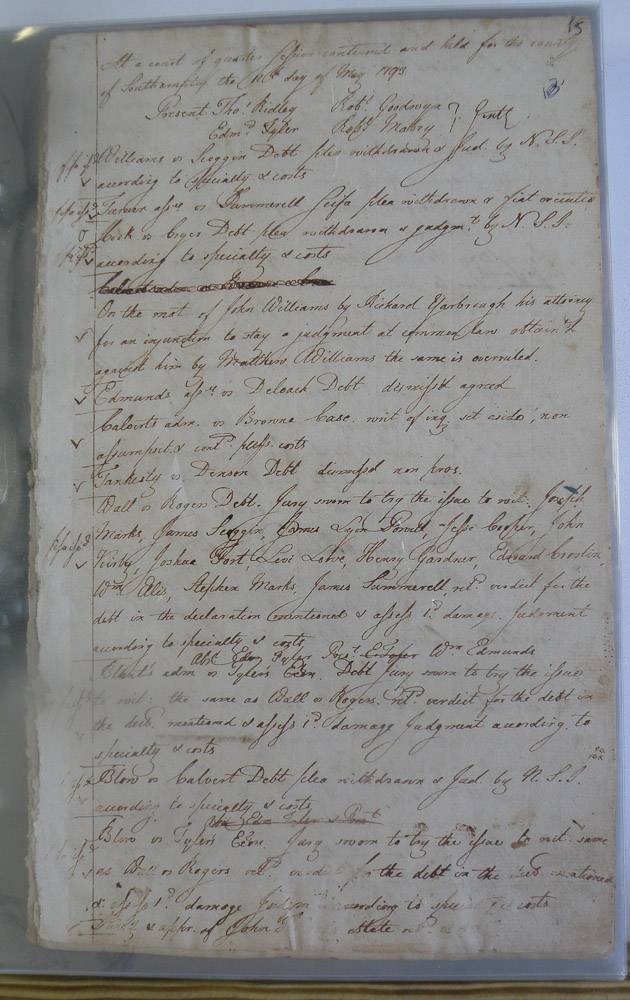 15
At a court of quarter Session continued and held for the county
of Southampton the 11th day of May 1793
Present Thos Ridley Robt Goodwyn } Gentl
Edmd Tyler Robt Mabry
Williams vs Scoggin Debt plea withdrawn & Jud. by N.S.I.
according to specialty & costs
Turner assee vs Summerell Scifa plea withdrawn & fiat executio
vs Debt plea withdrawn & judgmt by N.S.I.
according to specialty & costs
On the mot of John Williams by Richard Yarbrough his attorney
for an injunction to stay a judgment at common law obtain'd
against him by Matthew Williams the same is overruled.
Edmunds assee vs Deloach Debt dismissd agreed
Calverts adm. vs Browne Case. writ of inq set aside, non
assumpsit & contd. costs
Tankesly vs Denson Debt dismissed non pros.
Wall vs Rogers Debt. Jury sworn to try the issue to wit: Joseph
Marks, James Scoggin, James Powell, Jesse Cooper, John
Kirby, Joshua Fort, Levi Lowe, Henry Gardner, Edward
Wm Ellis, Stephen Marks, James Summerell, retd verdict for the
debt in the declaration mentioned & assess 1d. damage. Judgment
according to specialty & costs
Abst Edm Tyler Wm Edmunds
adm vs Tyler's Exon. Debt Jury sworn to try the issue
to wit: the same as Wall vs Rogers. retd verdict for the debt in
the decl. mentioned & assess 1d. damage Judgment according to
specialty & costs
Blow vs Calvert Debt plea withdrawn & Jud. by N.S.I.
according to specialty & costs
Blow vs Tyler's Exon. Jury sworn to try the issue to wit. same
as Wall vs Rogers retd. verdict for the debt in the mentioned
& assess 1d. damage according to costs
& appr. of John State